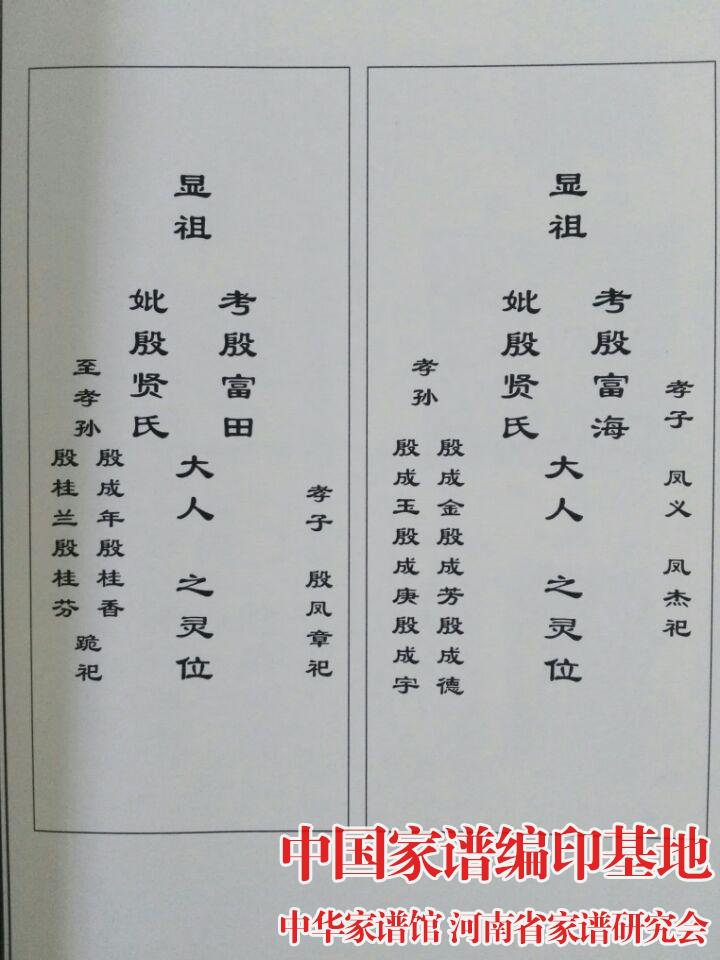 孝子 凤义 凤杰祀
显祖
考殷富海
妣殷贤氏
大人 之灵位
孝孙
殷成金殷成芳殷成德
殷成玉殷成庚殷成宇
孝子 殷凤章祀
显祖
考殷富田
妣殷贤氏
大人 之灵位
至孝孙
殷成年殷桂香
殷桂兰殷桂芬
跪祀
中国家谱编印基地
中华家谱馆 河南省家谱研究会